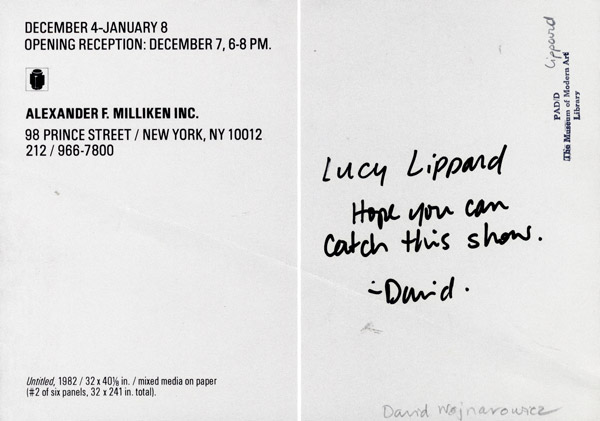 DECEMBER 4-JANUARY 8
OPENING RECEPTION: DECEMBER 7, 6-8 PM.
ALEXANDER F. MILLIKEN INC.
98 PRINCE STREET / NEW YORK, NY 10012
212 / 966-7800
Untitled, 1982 / 32 x 40⅛ in. / mixed media on paper
(#2 of six panels, 32 x 241 in. total).
Lippard
PAD/D
The Museum of Modern Art
Library
Lucy Lippard
Hope you can
catch this show.
-David.
David Wojnarowicz